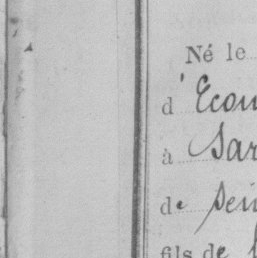 Né le
d'Econ
à Sar
de Sein
fils de